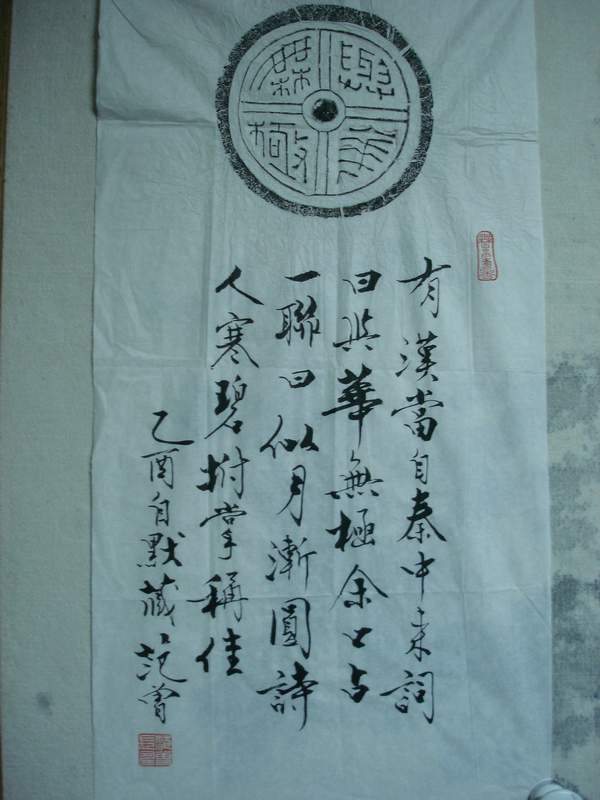 與華無極
有漢當自秦中来詞
曰與華無極余口占
一聯曰似月漸圓詩
人寒碧拊掌稱佳
乙酉自默藏范曾